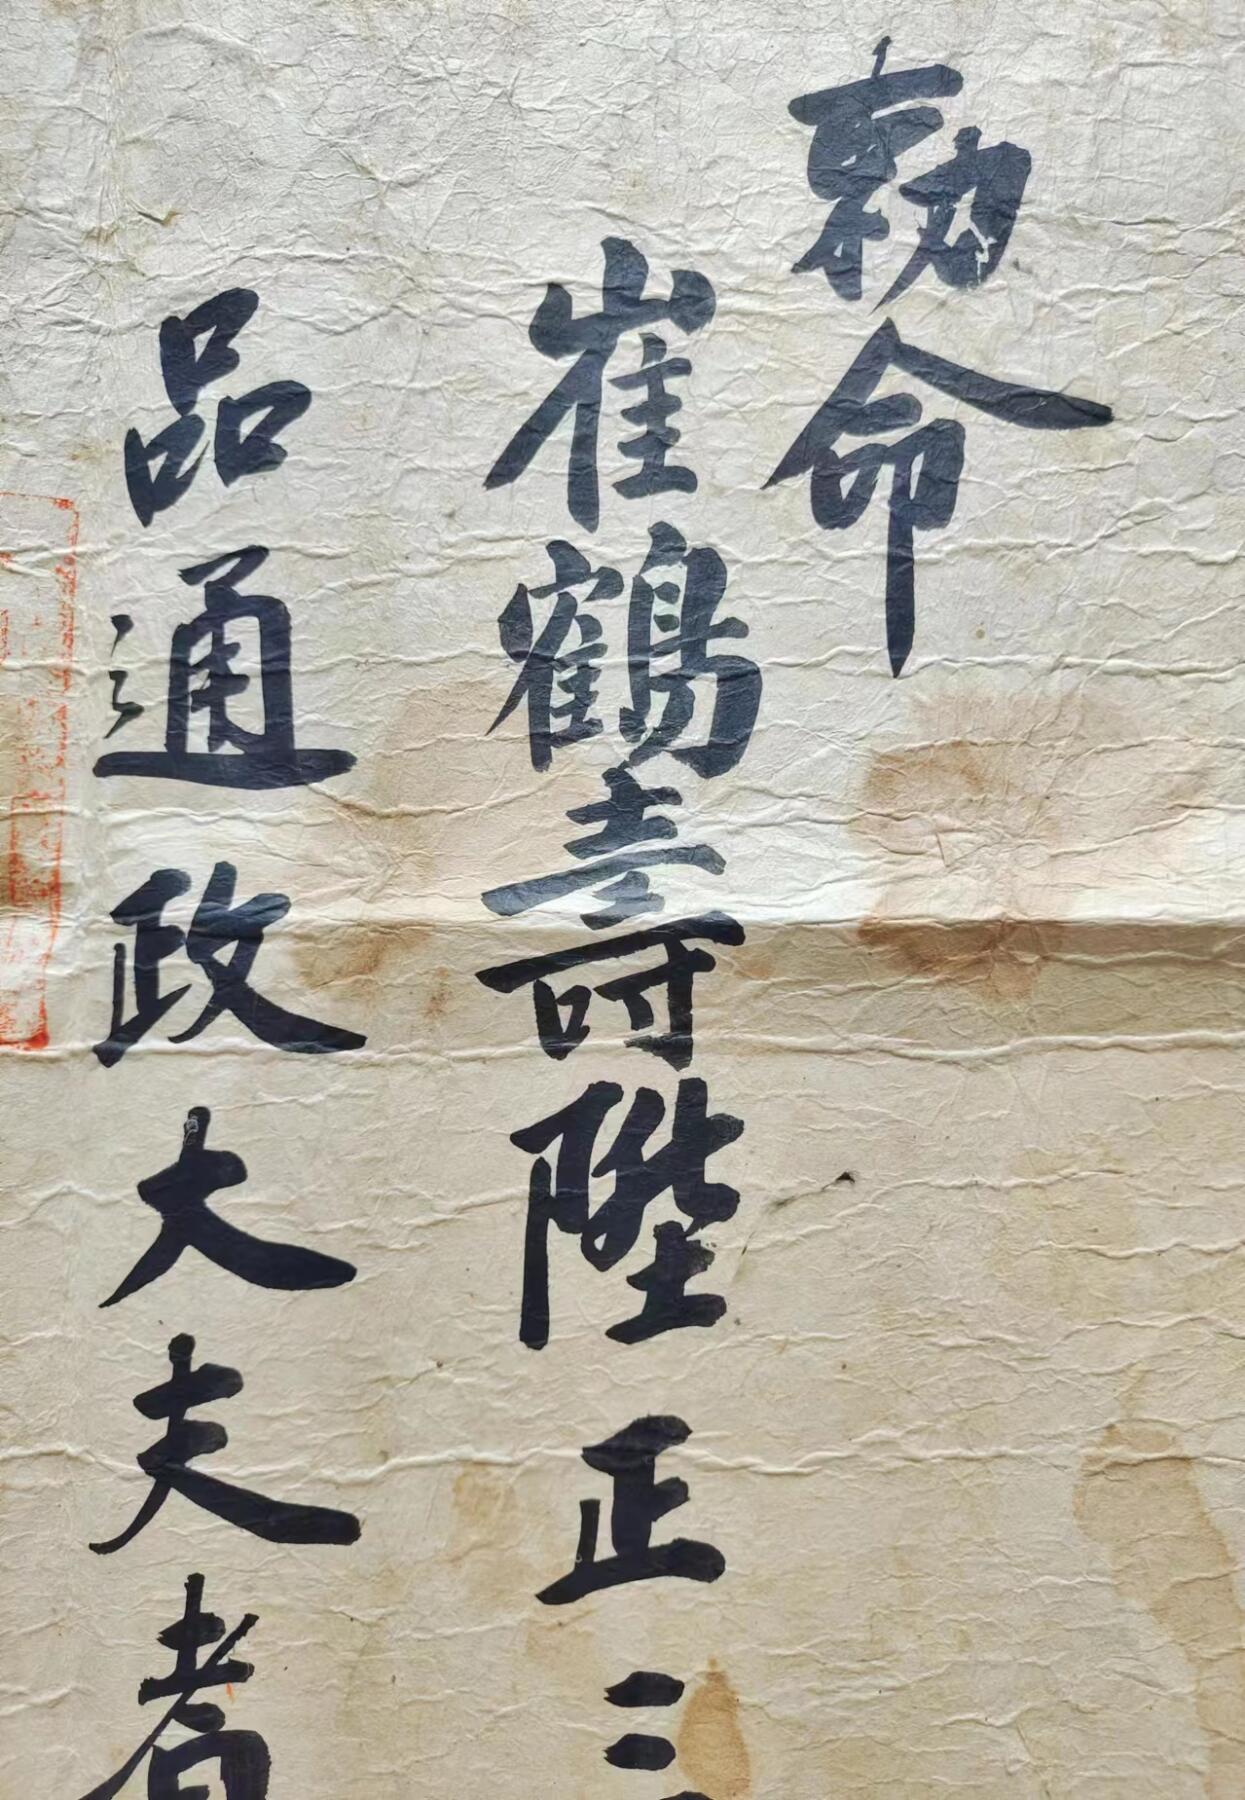 勅命
崔鶴壽陞正三
品通政大夫者